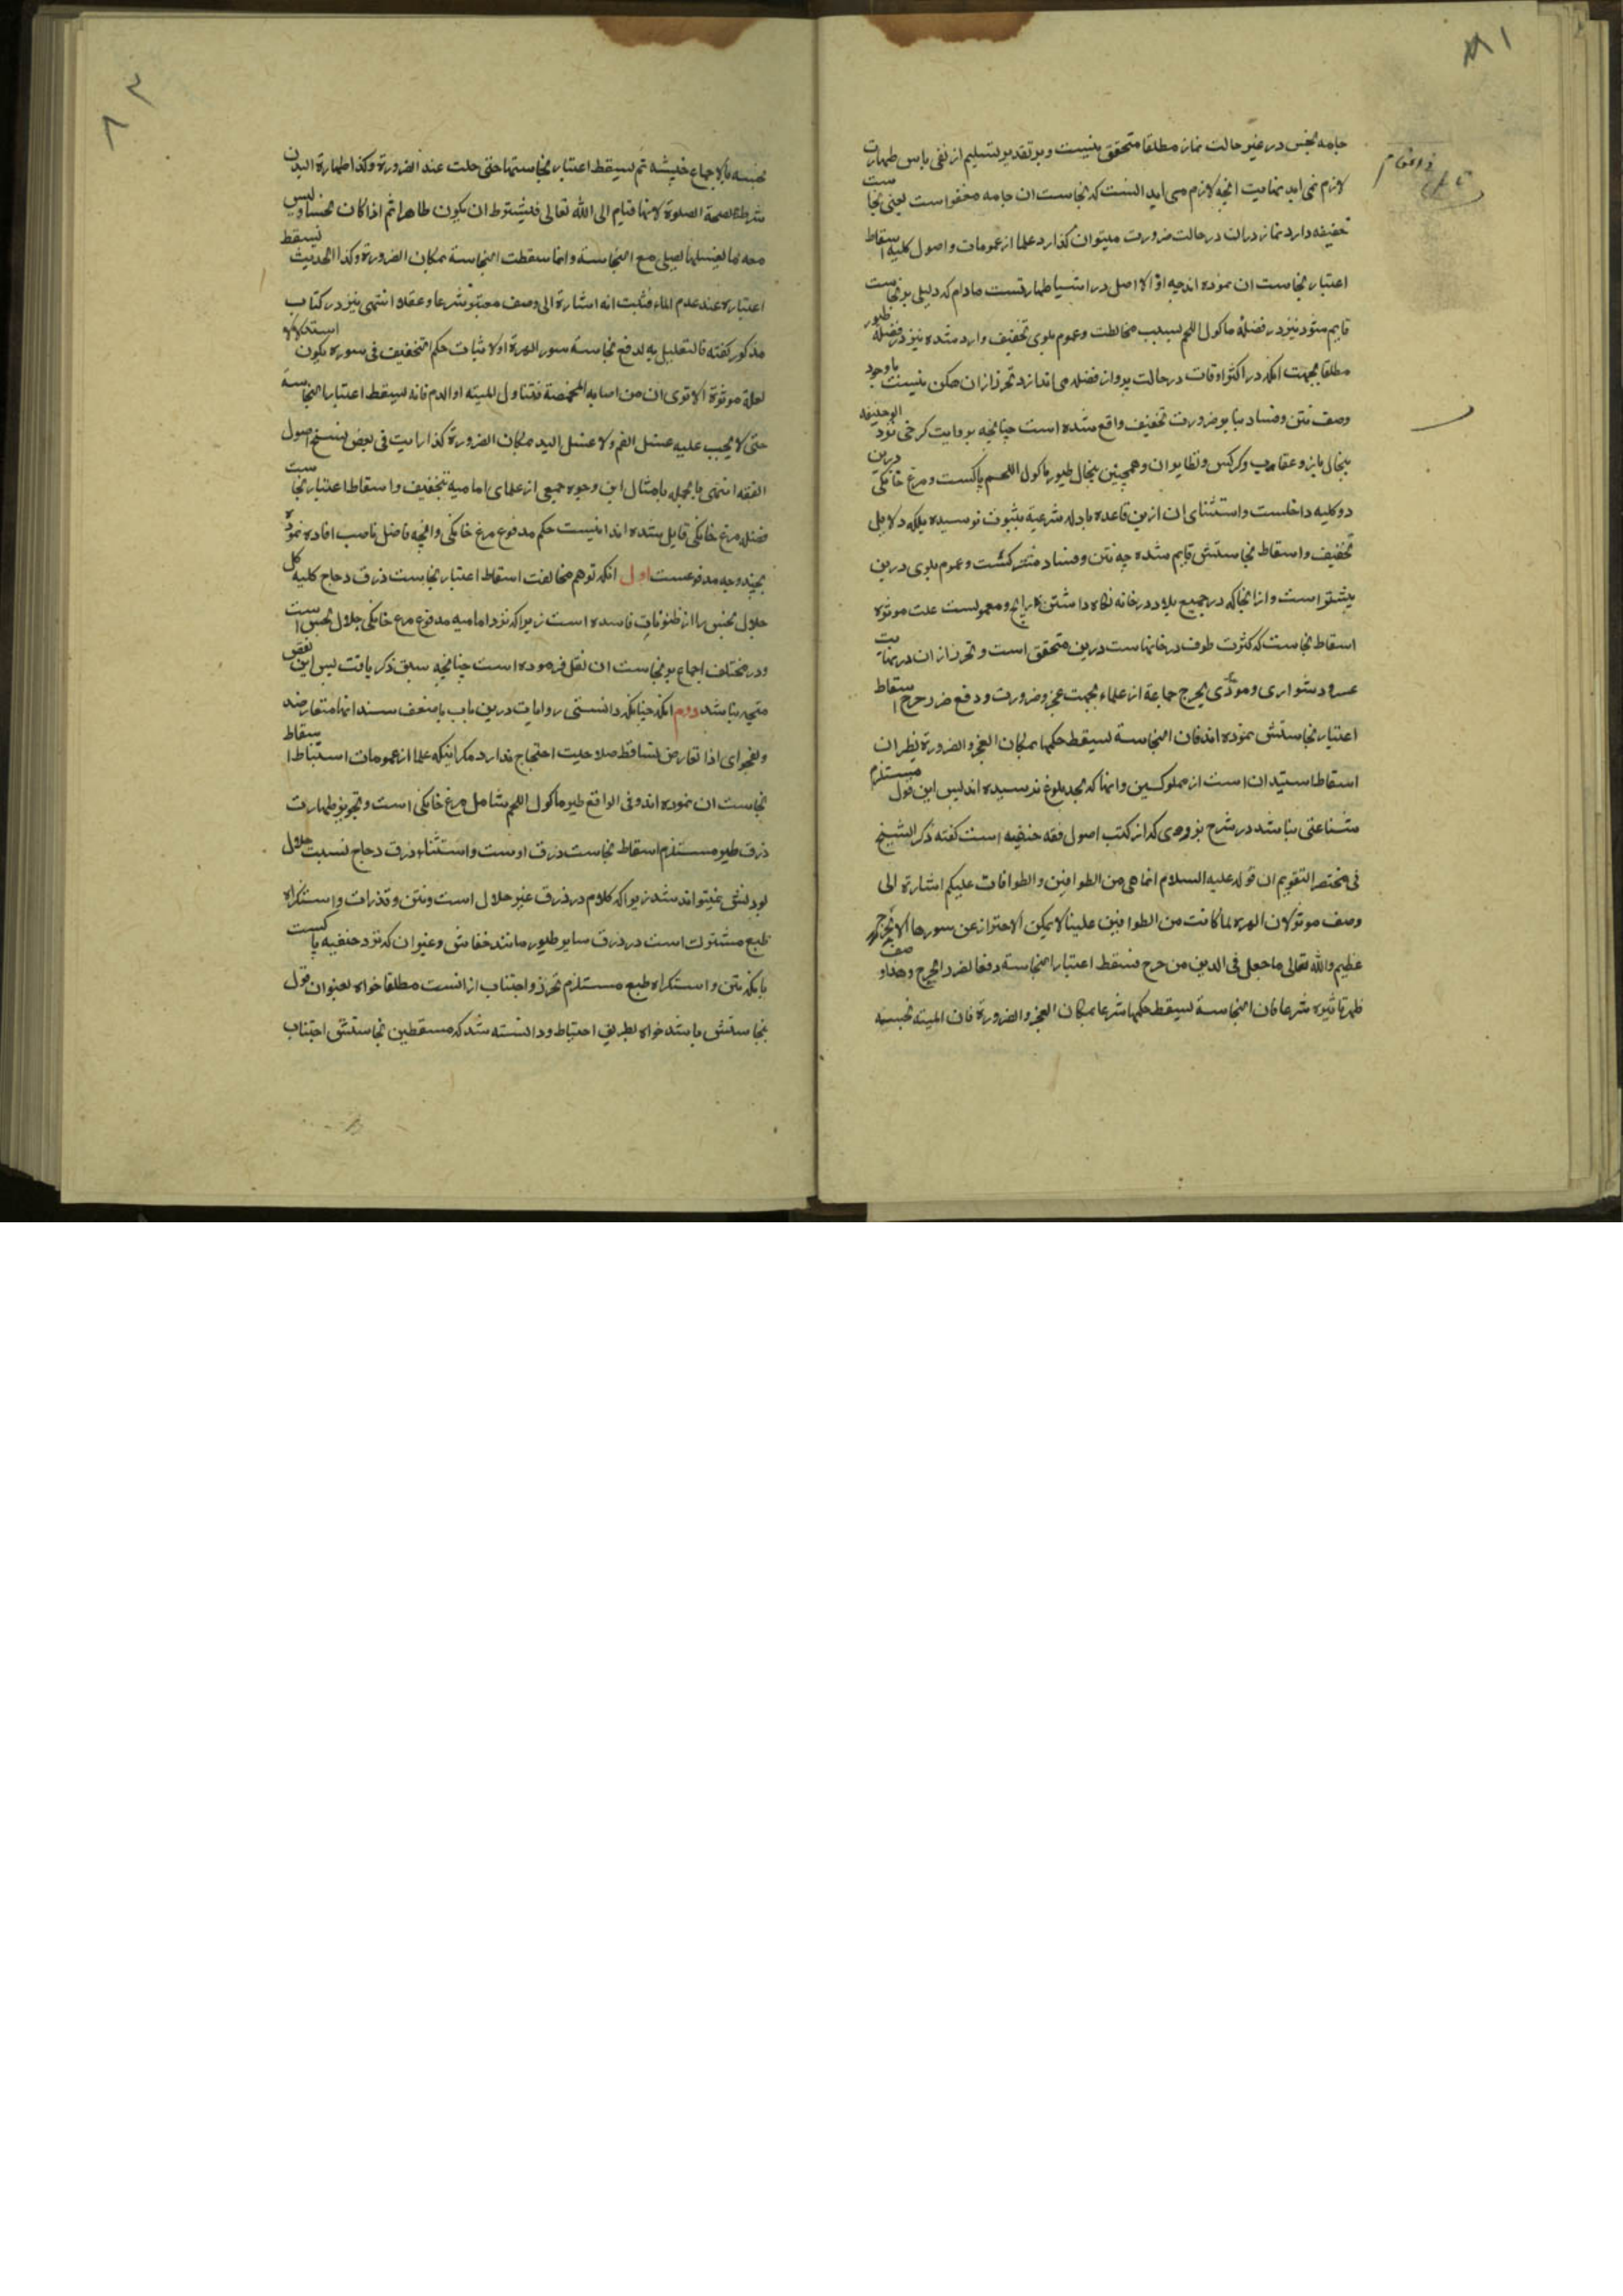 جامه نجس در غیر حالت نماز مطلقا متحقق نیست و بر تقدیر تسلیم از نفی باس طهارت
لازم نمی اید نهایت انچه لازم می اید النست که نجاست ان جامه معفو است یعنی نجاست
خفیفه دارد نماز دران در حالت ضرورت میتوان گذارد علما از عمومات و اصول کلیه اسقاط
اعتبار نجاست ان نموده اند چه اولا اصل در اشیا طهارتست مادام که دلیلی بر نجاست
قایم شود نیز در فضله ماکول اللحم بسبب مخالطت و عموم بلوی تخفیف وارد شده نیز در فضله طیور
مطلقا بجهت انکه در اکثر اوقات در حالت پرواز فضله می اندازد تحرز ازان ممکن نیست باوجود
وصف نتن و فساد بنا بر ضرورت تخفیف واقع شده است چنانچه بروایت کرخی نزد ابوحنیفه
پیخال باز و عقاب و کرکس و نظایر ان و همچنین پیخال طیور ماکول اللحم پاکست و مرغ خانکی درین
دو کلیه داخلست و استثنای ان ازین قاعده بادله شرعیه بثبوت نرسیده بلکه دلایل
تخفیف و اسقاط نجاستش قایم شده چه نتن و فساد منتفی کشت و عموم بلوی درین
بیشتر است و از انجا که در جمیع بلاد در خانه نکاه داشتن رایج و معمولست علت موثره
اسقاط نجاست که کثرت طوف در خانهاست درین متحقق است و تحرز ازان در نهایت
عسر و دشواری و مودی بحرج جماعة از علماء بجهت عجز و ضرورت و دفع ضرر حرج اسقاط
اعتبار نجاستش نموده اند فان النجاسة لیسقط حکمها بمکان العجز والضرورة نظیر ان
اسقاط استیدان است از مملوکین و انها که بحد بلوغ نرسیده اند پس این قول مستلزم
شناعتی نباشد در شرح بزودی که از کتب اصول فقه حنفیه است کفته ذکر الشیخ
فی مختصر التقویم ان قوله علیه السلام انما هی من الطوافین والطوافات علیکم اشارة الی
وصف موثر لان الهره لما کانت من الطوافین علینا لا یمکن الاحتراز عن سورها الا بحرج
عظیم والله تعالی ما جعل فی الدین من حرج فسقط اعتبار النجاسة دفعا لضرر الحرج و هذا وصف
ظهر تاثیره شرعا فان النجاسة لیسقط حکمها شرعا بمکان العجز والضرورة فان المیته نجسة
خبیثه ثم لیسقط اعتبار نجاستها حتی حلت عند الضرورة وکذا طهارة البدن
شرط لصحة الصلوة لانها قیام الی الله تعالی فلیشترط ان یکون طاهرا ثم اذا کان نجسا ولیس
معه ما یغسلها یصلی مع النجاسة وانما سقطت النجاسة بمکان الضرورة وکذا الحدیث لیسقط
اعتباره عند عدم الماء فثبت انه اشارة الی وصف معتبر شرعا وعقلا انتهی نیز در کتاب
مذکور کفته فالتعلیل به لدفع نجاسة سور الهرة او لاثبات حکم التخفیف فی سوره یکون استدلالا
لعلة موثرة الا تری ان من اصابه المخمصة فتناول المیته او الدم فانه لیسقط اعتبار النجاسة
حتی لا یجب علیه غسل الفم ولا غسل الید بمکان الضرورة کذا رایت فی بعض نسخ اصول
الفقه انتهی بالجمله بامثال این وجوه جمیعی از علمای امامیه بتخفیف و اسقاط اعتبار نجاست
فضله مرغ خانکی قایل شده اند حکم مدفوع مرغ خانکی و انچه فاضل ناصب افاده نموده
بچند وجه مدفوعست اول انکه توهم مخالفت اسقاط اعتبار نجاست ذرق دجاج کلیه کل
جلال نجس را از ظنونات فاسده است زیرا که نزد امامیه مدفوع مرغ خانکی جلال نجس است
و در مختلف اجماع بر نجاست ان نقل فرموده است چنانچه سبق ذکر یافت پس این نقض
متجه نباشد دوم انکه چنانکه دانستی روایات درین باب با ضعف سند انها متعارضند
و بفحوای اذا تعارض تساقط صلاحیت احتجاج ندارد مکر اینکه علما از عمومات استنباط اسقاط
نجاست ان نموده اند و فی الواقع طیر ماکول اللحم شامل مرغ خانکی است و تجویز طهارت
ذرق طیر مستلزم اسقاط نجاست ذرق اوست و استثناء ذرق دجاج نسبت جلال
بودنش نمیتواند شد زیرا که کلام در ذرق غیر جلال است و نتن و قذرات و استکراه
طبع مشترک است در ذرق سایر طیور مانند خفاش و غیر ان که نزد حنفیه پاکست
با انکه نتن و استکراه طبع مستلزم تحرز و اجتناب از انست مطلقا خواه بعنوان قول
بنجاستش باشد خواه بطریق احتیاط و دانسته شد که مسقطین نجاستش اجتناب